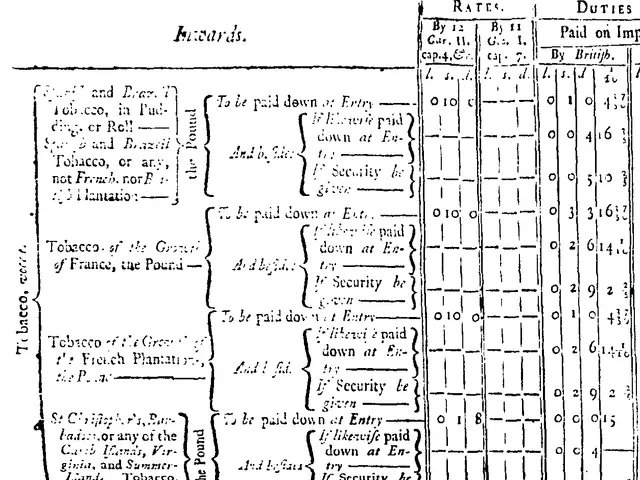 RATES.
DUTIES
Inwards.
By 12
Car. II.
cap. 4, &c.
By 11
Geo. I.
cap. 7.
Paid on Imp
By British.
l. s. d.
l. s. d.
l. s. d
Tobacco, vocat.
Spanish and Brazeil
Tobacco, in Pud-
ding, or Roll
Spanish and Brazeil
Tobacco, or any,
not French, nor Bri-
tish Plantation
the Pound
To be paid down at Entry
0 10 0
0 1 0
And besides
If likewise paid
down at En-
try
0 0 4 16
If Security be
given
0 0 5 10
To be paid down at Entry
0 10 0
0 3 3 16
Tobacco of the Growth
of France, the Pound
And besides
If likewise paid
down at En-
try
0 2 6 14
If Security be
given
0 2 9 2
To be paid down at Entry
0 10 0
0 1 0
Tobacco of the Growth of
the French Plantations,
the Pound
And besides
If likewise paid
down at En-
try
0 2 6 14
If Security be
given
0 2 9 2
St Christopher's, Bar-
badoes, or any of the
Carib Islands, Vir-
ginia, and Summer-
Islands, Tobacco,
the Pound
To be paid down at Entry
0 1 8
0 0 0 15
And besides
If likewise paid
down at En-
try
0 0 4
If Security be